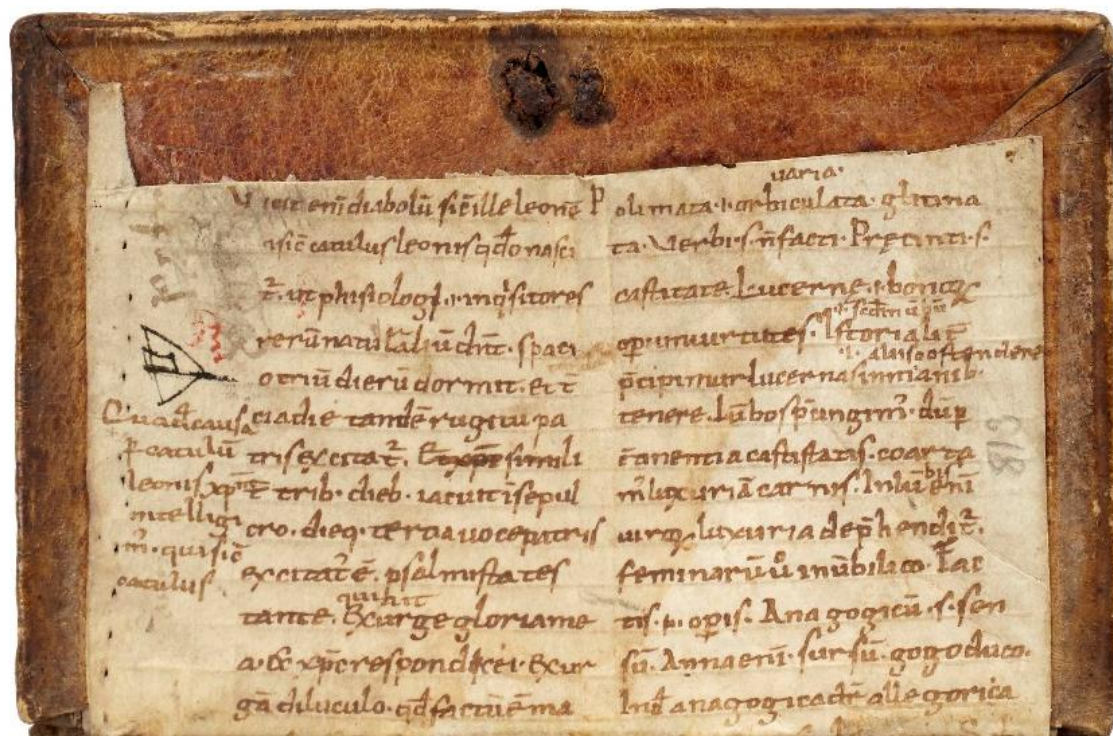 Vicit eni diabolū sic̄ ille leonē
⁊ sic̄ catulus leonis qd̄o nasci
t̄. ut phisiologi .i. inq̇sitores
rerū naturaliū dn̄t. spaci
o triū dierū dormit. et t̄
cia die tandē rugitu pa
tris excitat̄. Et xpc̄ simili
t̄ trib. dieb. iacuit ī sepul
cro. dieq. tertia voce patris
excitat̄ ē. psalmista tes
quiait
tante. Exurge gloria me
a. & xpc̄ respondit ei. Exur
gā diluculo. qd̄ factū ē ma
Qua de causa
p̄ catulū
leonis xpm̄
intelligi
m̄. qui sic̄
catulus
varia.
Polimata .i. orbiculata. glutina
ta. Verbi .s. n̄ facti. Precincti .s.
castitate. Lucerne .i. bonoꝝ
opūm uirtutes. Istorialit̄
.i. aliis ostendere
p̄cipimur lucernas in manib.
tenere. Lūbos p̄cingim̄. dū p̄
c̄tinentia castitatis. coarta
m̄ luxuriā carnis. In lūbis eni
uiroꝝ luxuria dep̄hendit̄.
feminarū ů in ūbilico. Fac
tis .i. opis. Anagogicū .s. sen
sū. Anna eni. sursū. gogo duco.
Ind̄ anagogica dr̄ allegorica
813